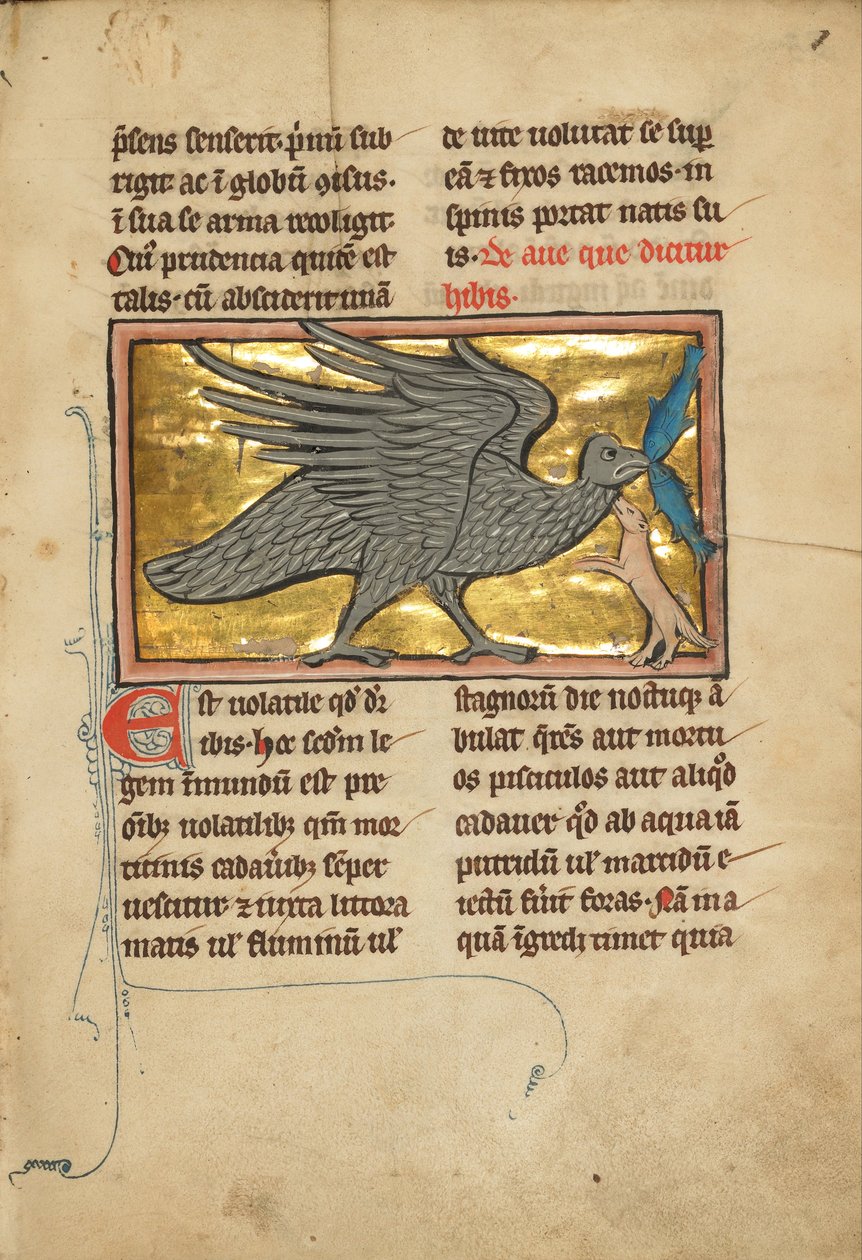 p̄sens senserit· p̍mū sub
rigit ac ī globū ꝯisus·
ī sua se arma recoligit·
Cui᷒ prudencia quitē est
talis· cū absciderit unā
de uite uolutat se sup̲
eā ⁊ fixos racemos· in
spinis portat natis su
is· De aue que dicitur
hibis·
Est uolatile qd̓ dr̄
ibis· hoc scd̓m le
gem īmundū est pre
oīb᷒ uolatilib᷒ qm̄ mor
ticinis cadau̓ib᷒ sēper
uescitur ⁊ iuxta littora
maris ul̓ fluminū ul̓
stagnorū die noctuqꝫ ā
bulat q̄rēs aut mortu
os pisciculos aut aliqͦd
cadauer qͦd ab aqua iā
putridū ul̓ marcidū e
iectū fu̓it foras· Nā in a
quā īgredi timet quia